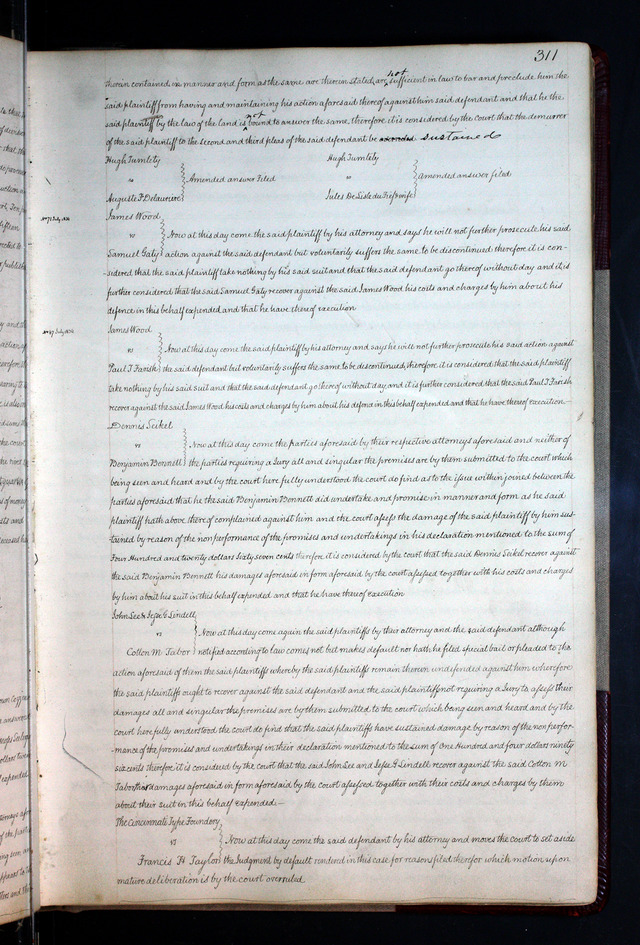 311
therein contained in manner and form as the same are therein stated, are not sufficient in law to bar and preclude him the
said plaintiff from having and maintaining his action aforesaid thereof against him said defendant and that he the
said plaintiff by the law of the land is not bound to answer the same, therefore it is considered by the court that the demurrer
of the said plaintiff to the second and third pleas of the said defendant be sustained
Hugh Tumlety Hugh Tumlety
vs Amended answer Filed vs Amended answer filed
Auguste F Delauriere Jules De Lisle du Fief & wife
James Wood
vs Now at this day come the said plaintiff by his attorney and says he will not further prosecute his said
Samuel Gaty action against the said defendant but voluntarily suffers the same to be discontinued; therefore it is con-
sidered that the said plaintiff take nothing by his said suit and that the said defendant go thereof without day and it is
further considered that the said Samuel Gaty recover against the said James Wood his costs and charges by him about his
defence in this behalf expended and that he have thereof execution
James Wood
vs Now at this day come the said plaintiff by his attorney and says he will not further prosecute his said action against
Paul T Farish the said defendant but voluntarily suffers the same to be discontinued, therefore, it is considered that the said plaintiff
take nothing by his said suit and that the said defendant go thereof without day, and it is further considered that the said Paul T Farish
recover against the said James Wood his costs and charges by him about his defence in this behalf expended and that he have thereof execution—
Dennis Seikel
vs Now at this day come the parties aforesaid by their respective attorneys aforesaid and neither of
Benjamin Bennett the parties requiring a Jury all and singular the premises are by them submitted to the court which
being seen and heard and by the court here fully understood the court do find as to the issue within joined between the
parties aforesaid that he the said Benjamin Bennett did undertake and promise in manner and form as he said
plaintiff hath above thereof complained against him and the court assess the damage of the said plaintiff by him sus-
tained by reason of the nonperformance of the promises and undertakings in his declaration mentioned to the sum of
Four Hundred and twenty dollars Sixty seven cents therefore it is considered by the court that the said Dennis Seikel recover against
the said Benjamin Bennett his damages aforesaid in form aforesaid by the court assessed together with his costs and charges
by him about his suit in this behalf expended and that he have thereof execution
John Lee & Jesse G Lindell
vs Now at this day come again the said plaintiffs by their attorney and the said defendant although
Cotton M Tabor notified according to law comes not but makes default nor hath he filed special bail or pleaded to the
action aforesaid of them the said plaintiffs whereby the said plaintiffs remain therein undefended against him wherefore
the said plaintiffs ought to recover against the said defendant and the said plaintiffs not requiring a Jury to assess their
damages all and singular the premises are by them submitted to the court which being seen and heard and by the
court here fully understood the court do find that the said plaintiffs have sustained damage by reason of the nonperfor-
mance of the promises and undertakings in their declaration mentioned to the sum of One Hundred and four dollars ninety
six cents therefore it is considered by the court that the said John Lee and Jesse G Lindell recover against the said Cotton M
Tabor damages aforesaid in form aforesaid by the court assessed together with their costs and charges by them
about their suit in this behalf expended.—
The Cincinnati Type Foundery
vs Now at this day come the said defendant by his attorney and moves the court to set aside
Francis H Taylor the Judgment by default rendered in this case for reasons filed therefor which motion upon
mature deliberation is by the court overruled